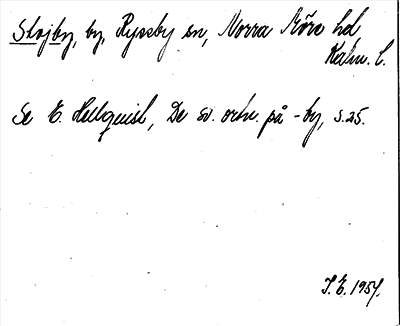 Slojby, by, Ryssby sn, Norra Möre hd,
Kalm. l.
Se E. Hellquist, De sv. ortn. på -by, s.25.
J.E. 1957.